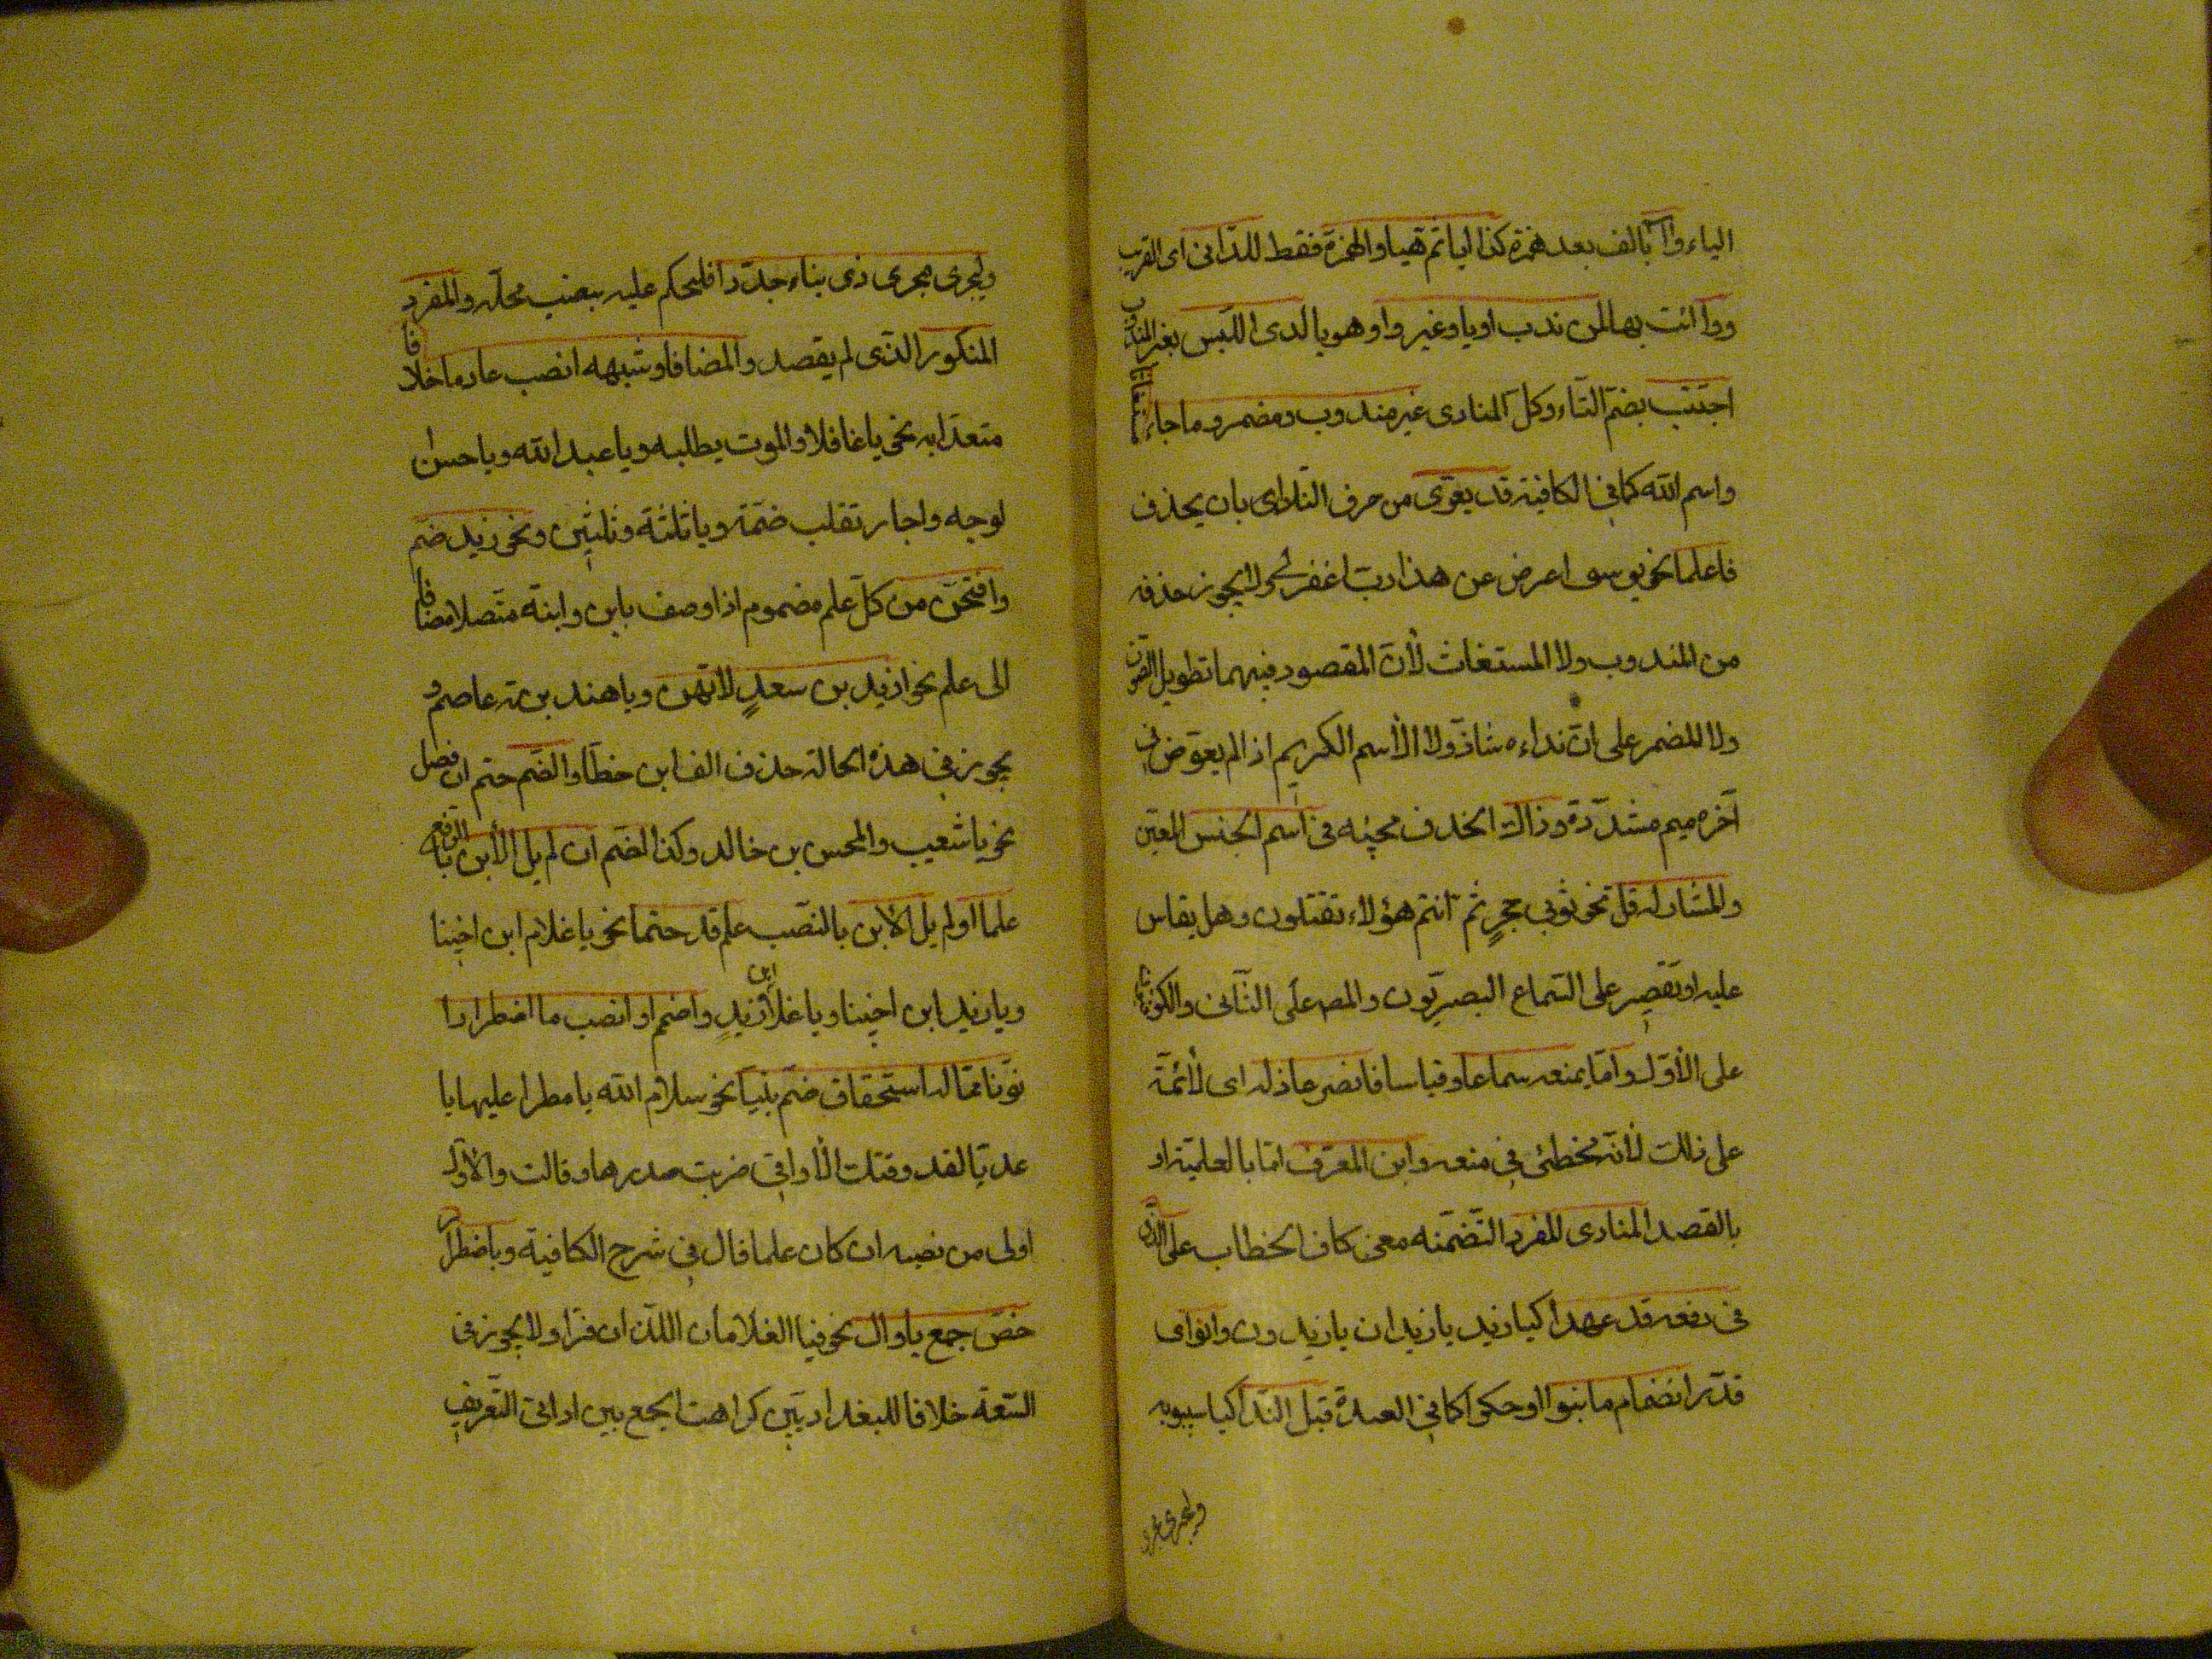 الياء وآ بالف بعد همزة كذا ايا ثم هيا والهمزة فقط للدّانى اى القريب
ووا ائت بها لمن ندب او يا وغير وا وهو يا لدى اللّبس بغير المندوب
اجتنب بضمّ التّاء وكلّ المنادى غير مندوب ومضمر وما جاء مستغاثا
واسم الله كما فى الكافية قد يعرّى من حرف النّداء اى بان يحذف
فاعلما نحو يوسف اعرض عن هذا ربّ اغفر لى ولا يجوز حذفه
من المندوب ولا المستغاث لأنّ المقصود فيهما تطويل الصّوت
ولا المضمر على انّ نداءه شاذّ ولا الأسم الكريم اذا لم يعوّض فى
آخره ميم مشدّدة وذاك الحذف مجيئه فى اسم الجنس المعيّن
والمشار له قلّ نحو ثوبى حجر ثم انتم هؤلاء تقتلون وهل يقاس
عليه او يقصر على السّماع البصريّون والمص على الثّانى والكوفيّون
على الأوّل وامّا يمنعه سماعا وقياسا فانصر عاذله اى لأئمّة
على ذلك لأنّه مخطئ فى منعه وابن المعرّف امّا بالعلميّة او
بالقصد المنادى المفرد التّضمّنه معنى كاف الخطاب على الّذى
فى رفعه قد عهدا كيا زيد يا زيدان يا زيدون وانو اى
قدّر انضمام ما بنوا او حكى كما فى العمدة قبل النّدا كيا سيبويه
وليجرى مجرى
وليجرى مجرى ذى بناء جدّدا فليحكم عليه بنصب محلّه والمفرد
المنكور الّذى لم يقصد والمضافا وشبهه انصب عادما خلافا
متعدّا به نحو يا غافلا والموت يطلبه ويا عبد الله ويا حسن
لوجه واجاز تقلب ضمّة ويا ثلثة وثلثين ونحو زيد ضمّ
وافتحنّ من كلّ علم مضموم اذا وصف بابن وابنة متّصلا مضافا
الى علم نحو ازيد بن سعيد لا تهن ويا هند بنة عاصم و
يجوز فى هذه الحالة حذف الف ابن خطّا والضّم حتم ان فصل
نحو يا شعيب والمحسن بن خالد وكذا الضّم ان لم يل الأبن بالرّفع
علما او لم يل الابن بالنّصب علم قد حتما نحو يا غلام ابن اخينا
ويا زيد ابن اخينا ويا غلام ابن زيد واضمم او انصب ما اضطرارا
نوّنا ممّا له استحقاق ضمّ بيّنا نحو سلام الله يا مطرا عليها يا
عديّا لقد وقتك الأواقى ضربت صدرها وقالت والاوّل
اولى من نصبه ان كان علما قال فى شرح الكافية وباضطرار
خصّ جمع يا وال نحو فيا الغلامان اللّذان فرّا ولا يجوز فى
السّعة خلافا للبغداديّين كراهت الجمع بين اداتى التّعريف